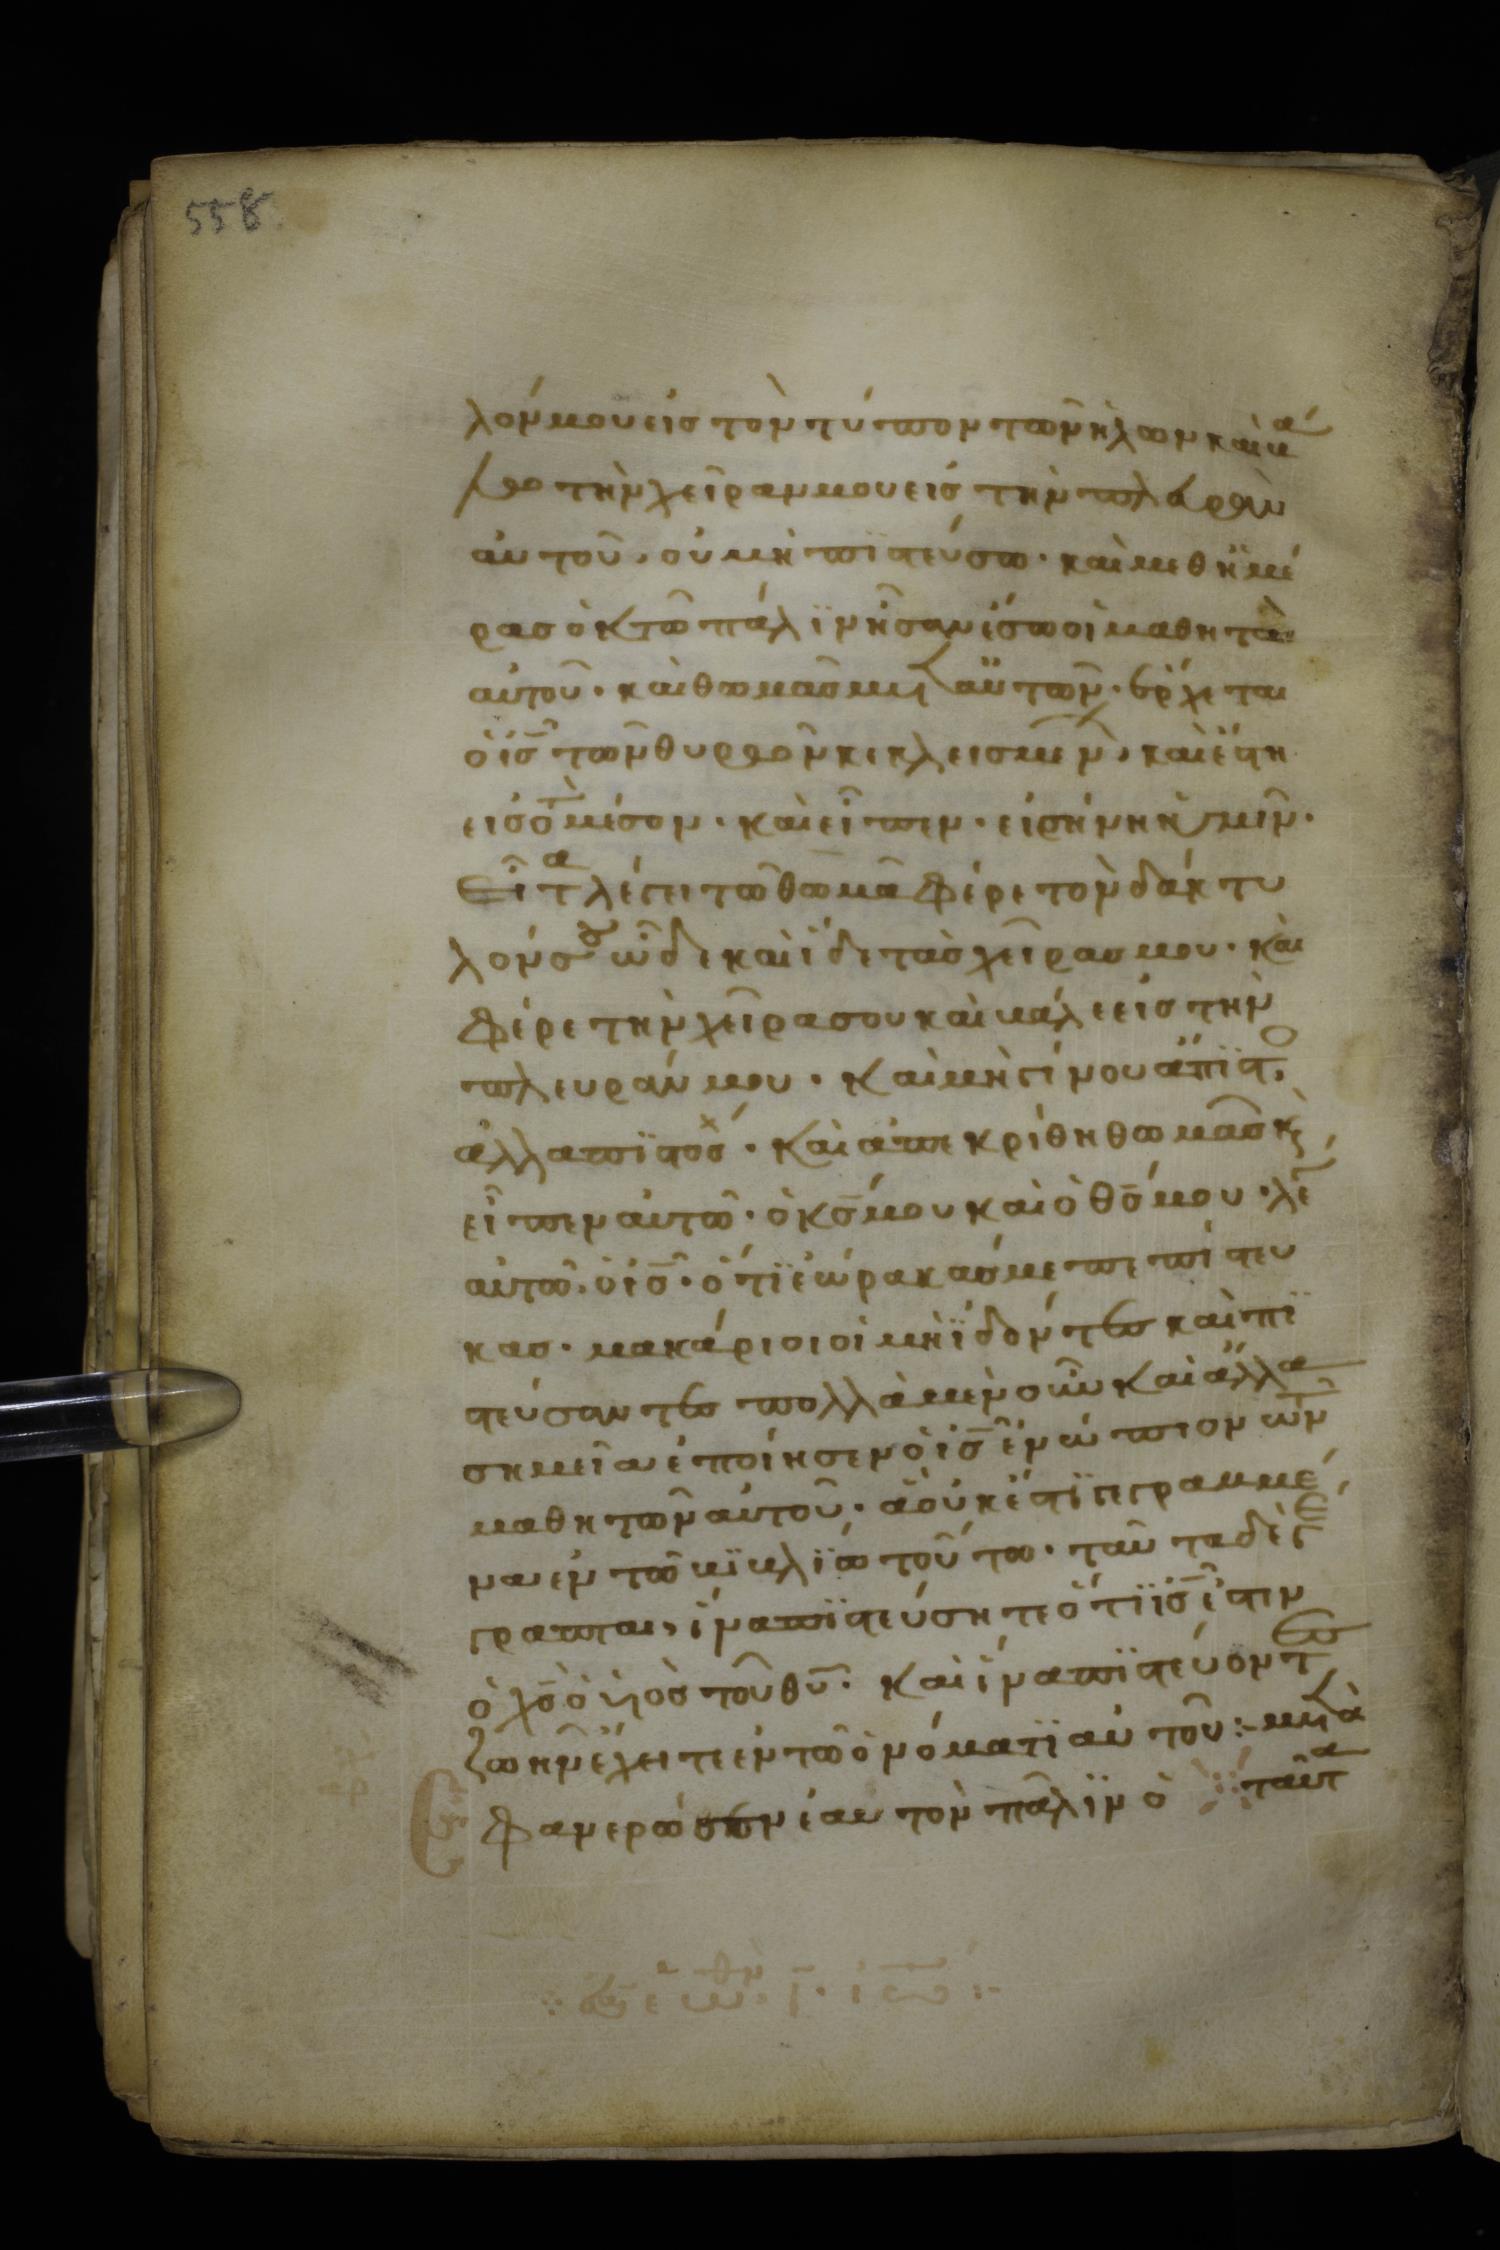 558
λόν μου εἰς τὸν τύπον τῶν ἥλων καὶ βά
λω τὴν χεῖραν μου εἰς τὴν πλευρὰν
αὐτοῦ, οὐ μὴ πϊστεύσω. καὶ μεθ ἡμέ
ρας ὀκτὼ πάλϊν ἦσαν ἔσω οἱ μαθηταὶ
αὐτοῦ. καὶ θωμᾶς μετ αὐτῶν. ἔρχεται
ὁ ις τῶν θυρῶν κεκλεισμέν, καὶ ἔστη
εἰς τὸ μέσον. καὶ εἶπεν. εἰρήνη ὑμῖν.
Εἶτα λέγει τῶ θωμᾶ φέρε τὸν δάκτυ
λόν σου ὧδε καὶ ἴδε τὰς χεῖρας μου. καὶ
φέρε τὴν χεῖρα σου καὶ βάλε εἰς τὴν
πλευράν μου. καὶ μὴ γίνου ἄπϊστο,
ἀλλα πϊστός. καὶ ἀπεκρίθη θωμᾶς κ
εἶπεν αὐτῶ. ὁ κς μου καὶ ὁ θς μου. λέ
αὐτῶ. ὁ ις. ὅτϊ ἑώρακάς με πεπίστευ
κας. μακάριοι οἱ μὴ ϊδόντες καὶ πϊ
στεύσαντες πολλὰ μὲν οὖν καὶ ἄλλα
σημεῖα ἐποίησεν ὁ ις ἐνώπιον τῶν
μαθητῶν αὐτοῦ. ἃ οὐκ ἔστϊ γεγραμμέ
να ἐν τῶ βϊβλϊω τούτω. ταῦτα δὲ γέ
γραπται, ἵνα πϊστεύσητε ὅτϊ ις ἐστιν
ὁ χς ὁ υἱὸς τοῦ θυ. καὶ ἵνα πϊστεύοντες
ζωὴν ἔχειτε ἐν τῶ ὀνόματϊ αὐτοῦ: μετὰ
ταῦτα
Ἐφανερώσεν ἑαυτὸν πάλϊν ὁ